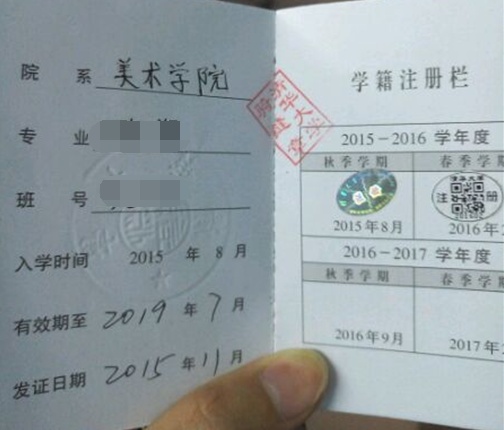 院 系 美术学院
专 业
班 号
入学时间 2015 年 8 月
有效期至 2019 年 7 月
发证日期 2015 年 11 月
清华大学
骑缝章
学籍注册栏
2015-2016 学年度
秋季学期 春季学期
清华大学
注 册
2015年8月 2016年
2016-2017 学年度
秋季学期 春季学期
2016年9月 2017年